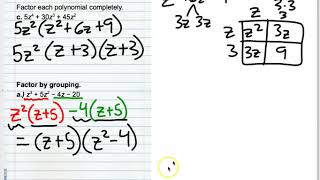 Factor each polynomial completely.
c. 5z⁴ + 30z³ + 45z²
5z²(z²+6z+9)
5z²(z+3)(z+3)
Factor by grouping.
a.) z³ + 5z² − 4z − 20
z²(z+5) −4(z+5)
= (z+5)(z²−4)
3z 3z
3·3
z 3
z z² 3z
3 3z 9